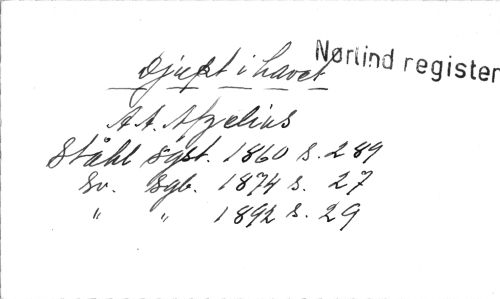 Djupt i havet
Nørlind register
A. A. Afzelius
Ståhl Sgst. 1860 s. 289
Sv. Sgb. 1874 s. 27
" " 1892 s. 29